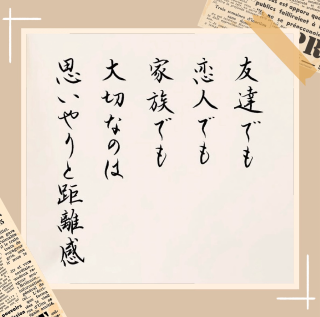 友達でも
恋人でも
家族でも
大切なのは
思いやりと距離感